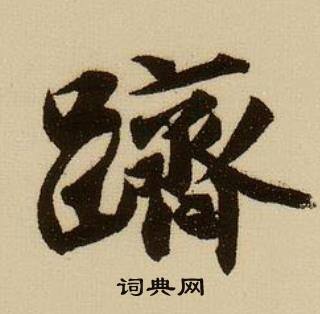 躋
词典网